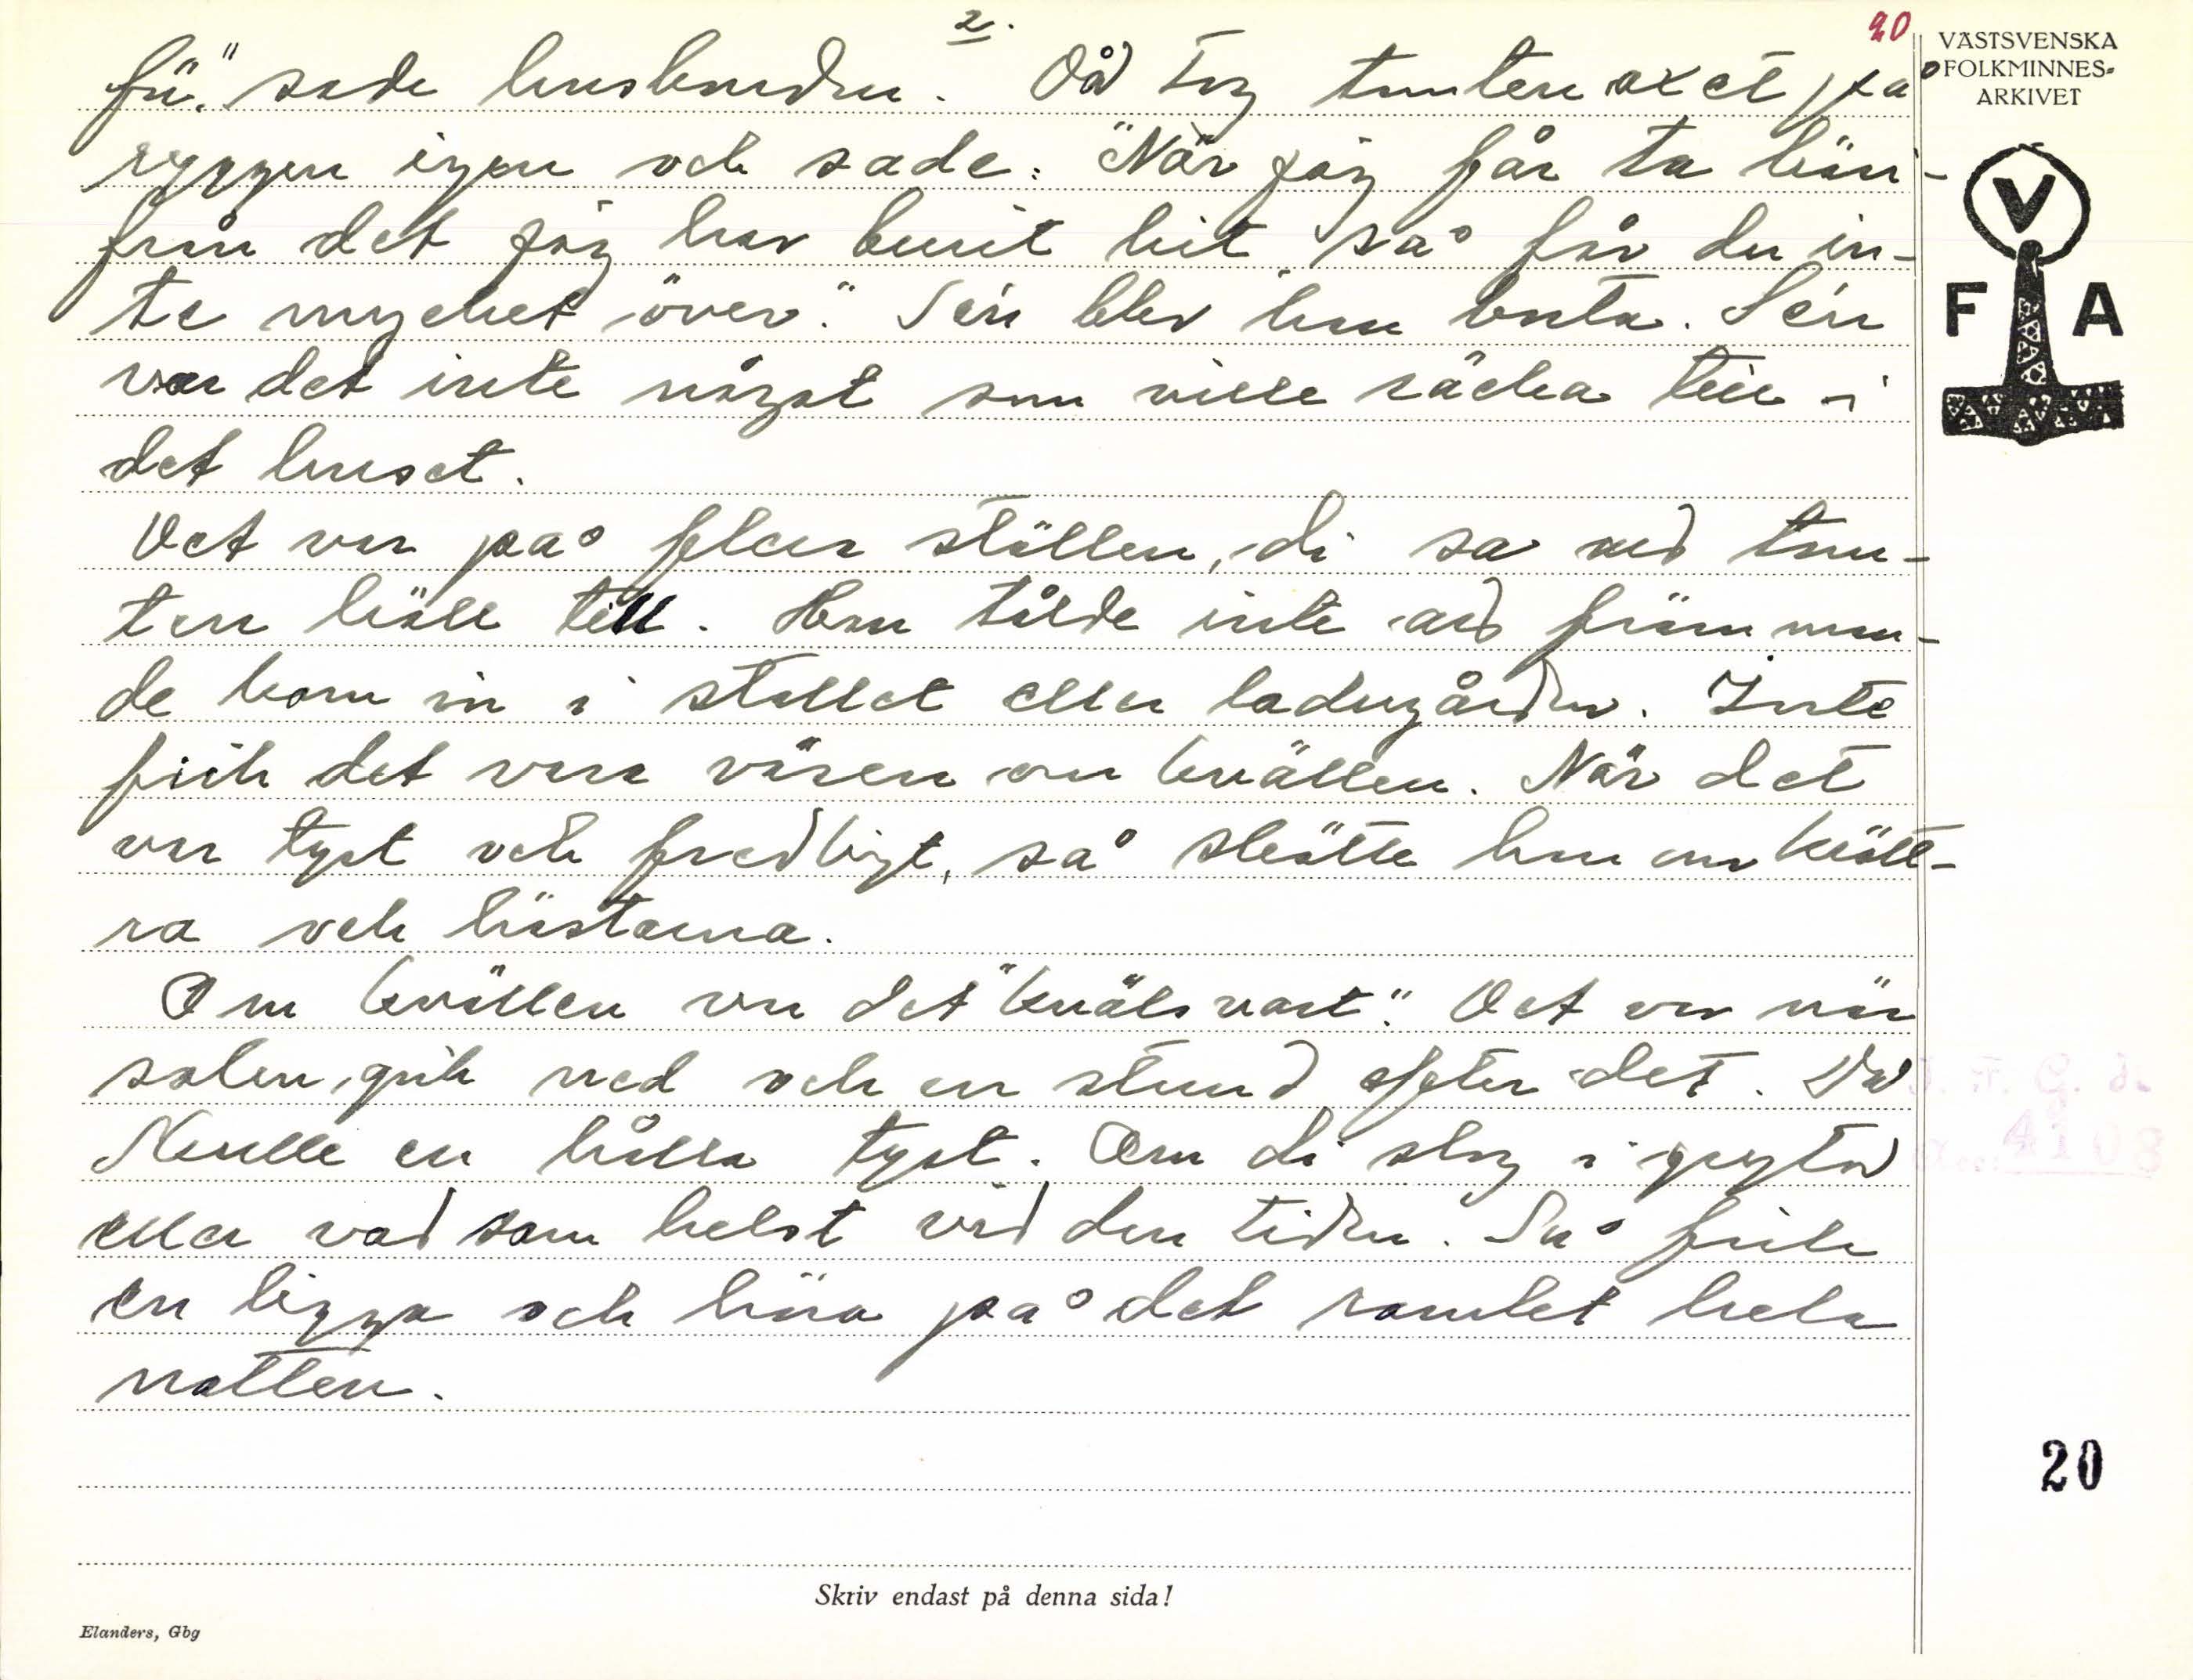 2.
20
VÄSTSVENSKA
FOLKMINNES-
ARKIVET
V
F A
för." sade husbonden. Då tog tomten axet på
ryggen igen och sade: "När jag får ta häri-
från det jag har burit hit, så får du in-
te mycket över." Sén blev han borta. Sén
var det inte något som ville räcka till i
det huset.
Det var på flera ställen, di sa att tom-
ten höll till. Han tålde inte att främman-
de kom in i stallet eller ladugården. Inte
fick det vara väsen om kvällen. När det
var tyst och fredligt, så skötte han om kött-
ra och hästarna.
Om kvällen var det "kvälsvart". Det var när
solen gick ned och en stund efter det. Då
skulle en hålla tyst. Om di slog i gryta
eller vad som helst vid den tiden. Så fick
en ligga och höra på det ramlet hela
natten.
20
Skriv endast på denna sida!
Elanders, Gbg